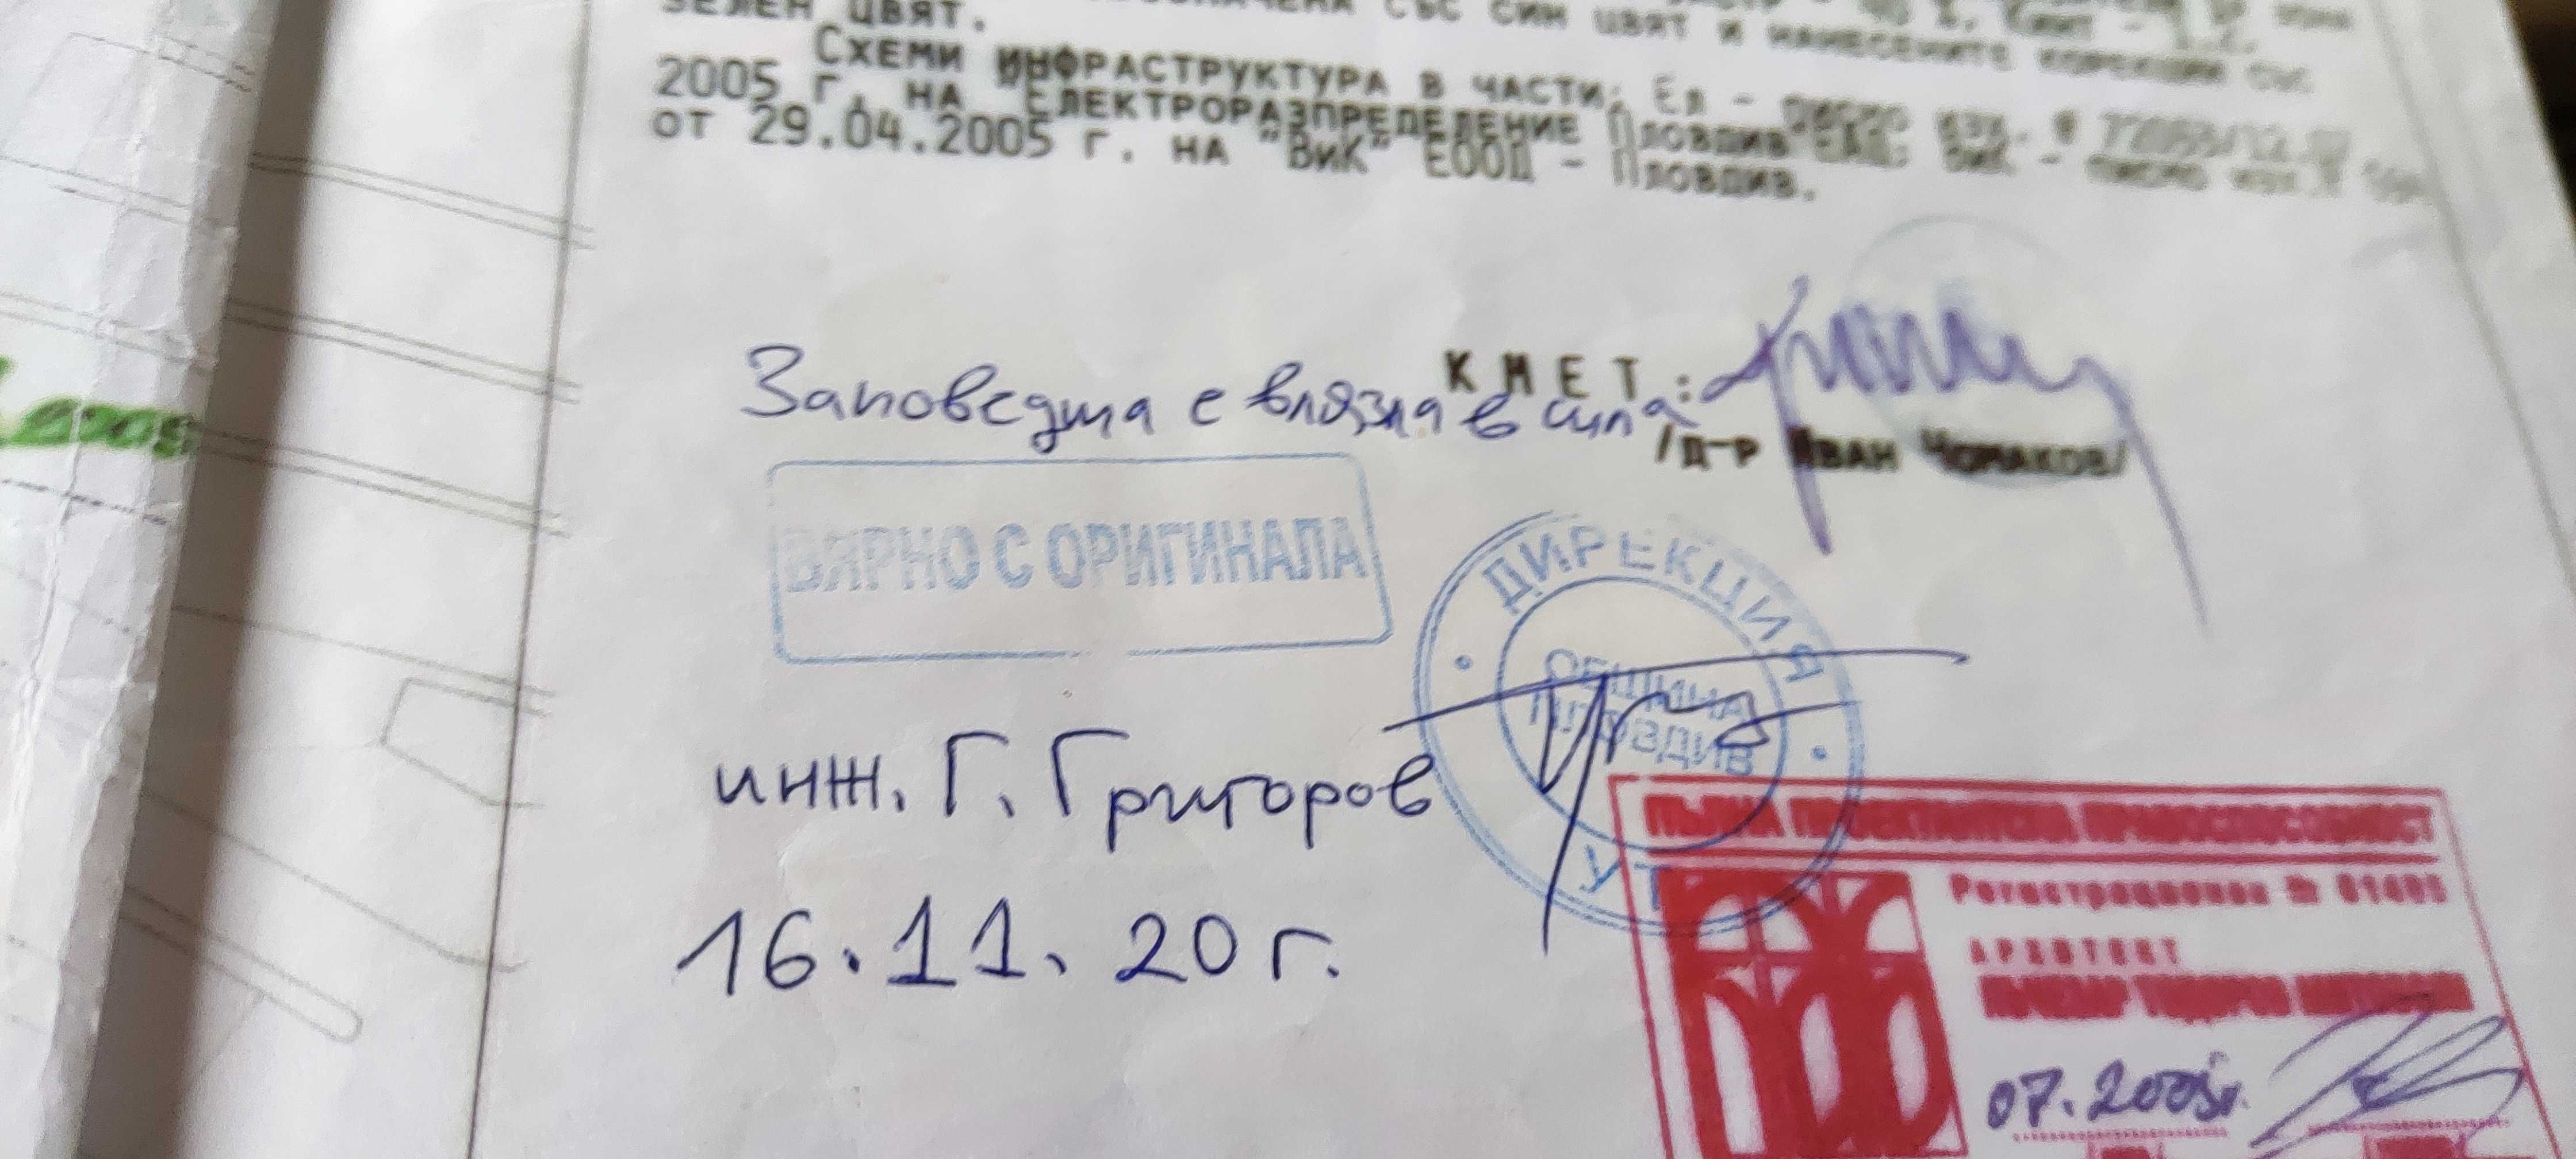 ЗЕЛЕН ЦВЯТ. СЪС СИН ЦВЯТ И НАНЕСЕНИТЕ КОРЕКЦИИ СЪС
СХЕМИ ИНФРАСТРУКТУРА В ЧАСТИ: ЕЛ - ПИСМО ИЗХ.
2005 Г. НА "ЕЛЕКТРОРАЗПРЕДЕЛЕНИЕ ПЛОВДИВ" ЕАД; ВИК - ПИСМО ИЗХ.
ОТ 29.04.2005 Г. НА "ВИК" ЕООД - ПЛОВДИВ.
К М Е Т :
Заповедта е влязла в сила
/Д-Р ИВАН ЧОМАКОВ/
2005
ВЯРНО С ОРИГИНАЛА
ДИРЕКЦИЯ
ОБЩИНА
ПЛОВДИВ
УТ
инж. Г. Григоров
16.11.20 г.
ПЪЛНА ПРОЕКТАНТСКА ПРАВОСПОСОБНОСТ
Регистрационен № 01405
АРХИТЕКТ
07.2005г.